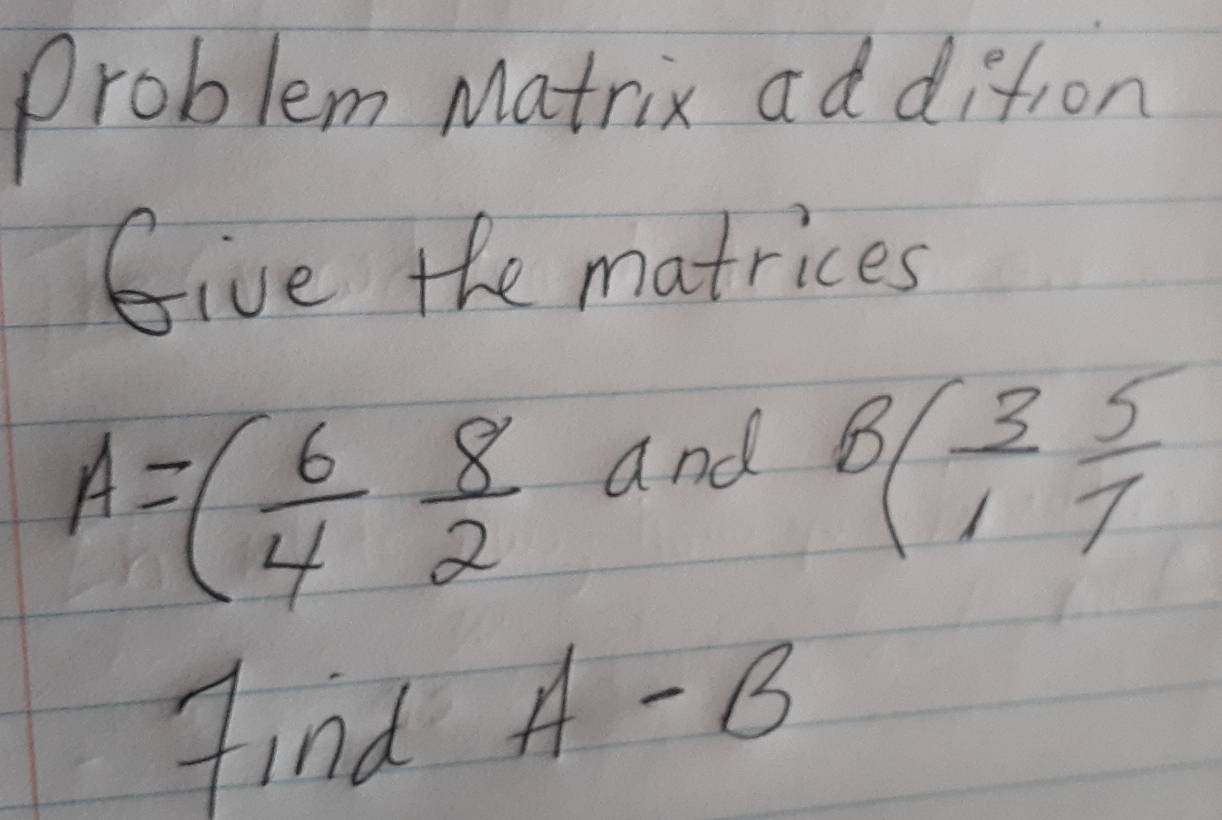 Problem Matrix addition
Give the matrices
A = ( 6/4 8/2 and B ( 3/1 5/7
Find A - B